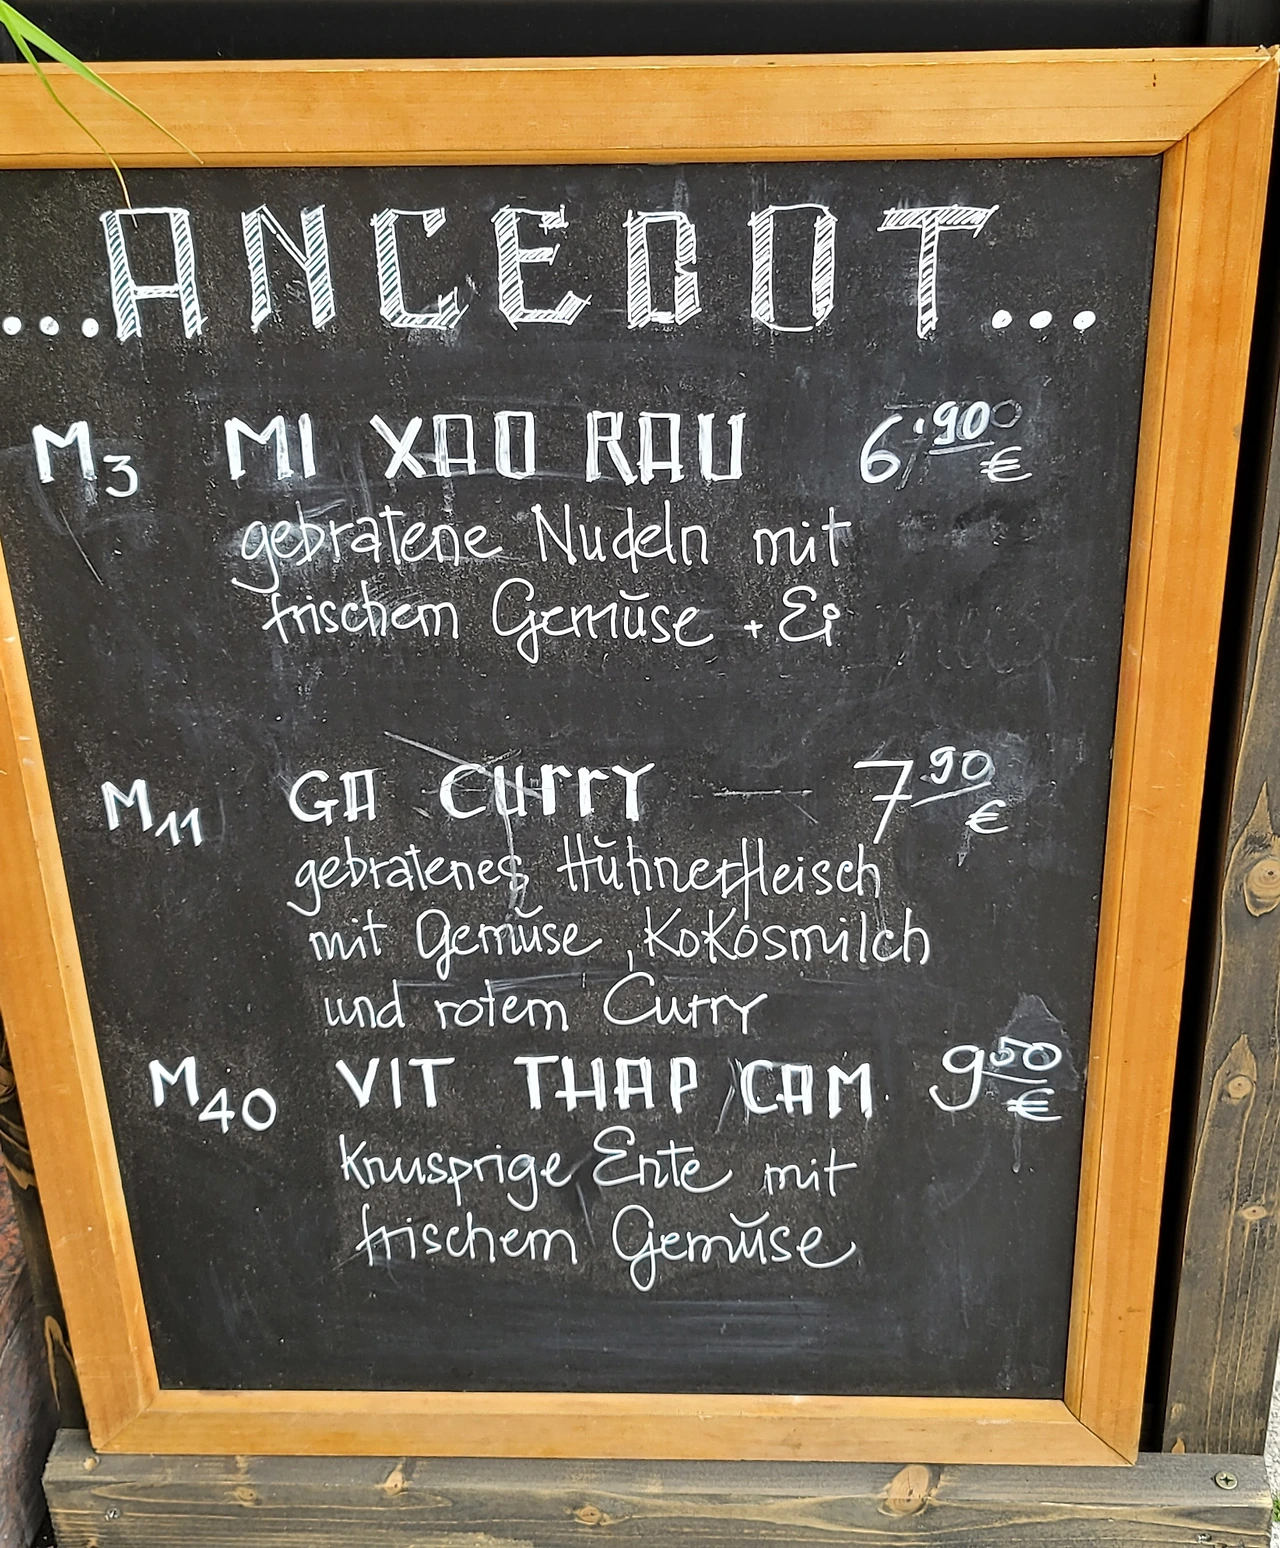 ...ANGEBOT...
M3 MI XAO RAU 6,90 €
gebratene Nudeln mit
frischem Gemüse + Ei
M11 GA CURRY 7.90 €
gebratenes Hühnerfleisch
mit Gemüse, Kokosmilch
und rotem Curry
M40 VIT THAP CAM 9.50 €
Knusprige Ente mit
frischem Gemüse